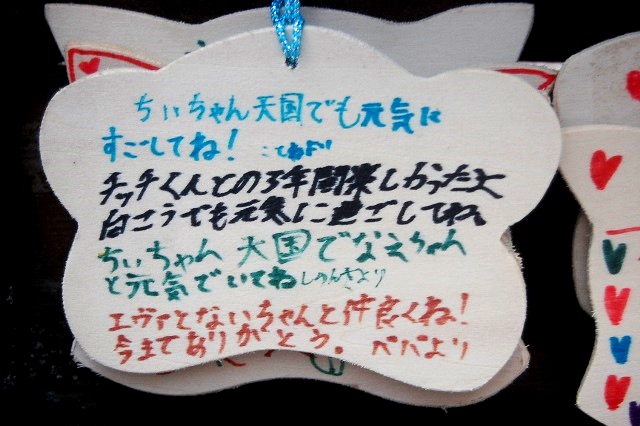 ちぃちゃん天国でも元気に
すごしてね!
チッチくんとの3年間楽しかったよ
向こうでも元気に過ごしてね。
ちぃちゃん 天国でなえちゃん
と元気でいてね
エヴァとないちゃんと仲良くね!
今まてありがとう。 パパより